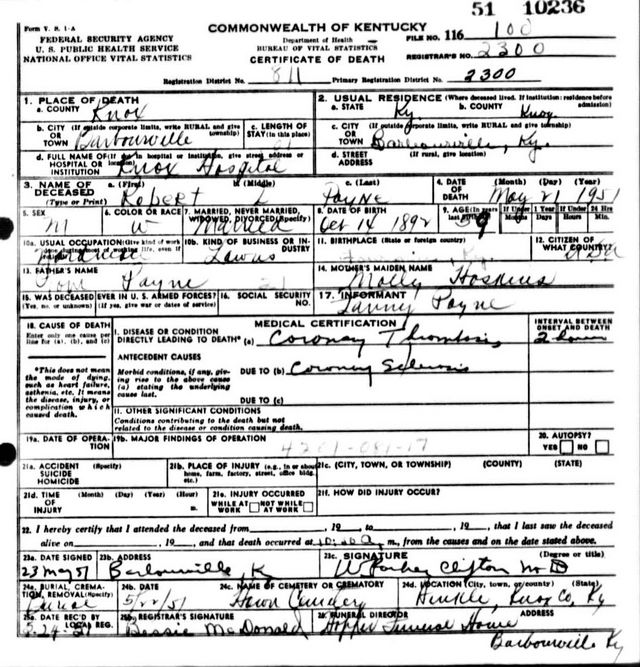 51 10236
Form V. S. 1-A
COMMONWEALTH OF KENTUCKY
FEDERAL SECURITY AGENCY
U. S. PUBLIC HEALTH SERVICE
NATIONAL OFFICE VITAL STATISTICS
Department of Health
BUREAU OF VITAL STATISTICS
CERTIFICATE OF DEATH
FILE NO. 116 100
REGISTRAR'S NO. 2300
Registration District No. 811 Primary Registration District No. 2300
1. PLACE OF DEATH
a. COUNTY Knox
2. USUAL RESIDENCE (Where deceased lived. If institution: residence before admission)
a. STATE Ky. b. COUNTY Knox
b. CITY OR TOWN (If outside corporate limits, write RURAL and give township) Barbourville
c. LENGTH OF STAY (in this place)
c. CITY OR TOWN (If outside corporate limits, write RURAL and give township) Barbourville, Ky.
d. FULL NAME OF HOSPITAL OR INSTITUTION (If not in hospital or institution, give street address or location) Knox Hospital
d. STREET ADDRESS (If rural, give location)
3. NAME OF DECEASED (Type or Print) a. (First) Robert b. (Middle) L c. (Last) Payne
4. DATE OF DEATH (Month) (Day) (Year) May 21 1951
5. SEX M
6. COLOR OR RACE W
7. MARRIED, NEVER MARRIED, WIDOWED, DIVORCED (Specify) Married
8. DATE OF BIRTH Oct 14 1892
9. AGE (In years last birthday) 59 If Under 1 Year Months Days If Under 24 Hrs Hours Min.
10a. USUAL OCCUPATION (Give kind of work done during most of working life, even if retired)
10b. KIND OF BUSINESS OR INDUSTRY
11. BIRTHPLACE (State or foreign country)
12. CITIZEN OF WHAT COUNTRY?
13. FATHER'S NAME Payne
14. MOTHER'S MAIDEN NAME Molly Hoskins
15. WAS DECEASED EVER IN U. S. ARMED FORCES? (Yes, no, or unknown) (If yes, give war or dates of service)
16. SOCIAL SECURITY NO.
17. INFORMANT Payne
18. CAUSE OF DEATH
Enter only one cause per line for (a), (b), and (c)
MEDICAL CERTIFICATION
INTERVAL BETWEEN ONSET AND DEATH
I. DISEASE OR CONDITION DIRECTLY LEADING TO DEATH* (a) Coronary Thrombosis 2 hours
*This does not mean the mode of dying, such as heart failure, asthenia, etc. It means the disease, injury, or complication which caused death.
ANTECEDENT CAUSES
Morbid conditions, if any, giving rise to the above cause (a) stating the underlying cause last.
DUE TO (b) Coronary Sclerosis
DUE TO (c)
II. OTHER SIGNIFICANT CONDITIONS
Conditions contributing to the death but not related to the disease or condition causing death.
19a. DATE OF OPERATION
19b. MAJOR FINDINGS OF OPERATION
4201-081-17
20. AUTOPSY?
YES NO
21a. ACCIDENT SUICIDE HOMICIDE (Specify)
21b. PLACE OF INJURY (e.g., in or about home, farm, factory, street, office bldg., etc.)
21c. (CITY, TOWN, OR TOWNSHIP) (COUNTY) (STATE)
21d. TIME OF INJURY (Month) (Day) (Year) (Hour) m.
21e. INJURY OCCURRED
WHILE AT WORK NOT WHILE AT WORK
21f. HOW DID INJURY OCCUR?
22. I hereby certify that I attended the deceased from , 19 to , 19 , that I last saw the deceased
alive on , 19 , and that death occurred at 10:00 A. m., from the causes and on the date stated above.
23a. DATE SIGNED 23 May 51
23b. ADDRESS Barbourville, Ky
23c. SIGNATURE (Degree or title) Clifton MD
24a. BURIAL, CREMATION, REMOVAL (Specify) Burial
24b. DATE 5/22/51
24c. NAME OF CEMETERY OR CREMATORY Cemetery
24d. LOCATION (City, town, or county) (State) Hinkle, Knox Co, Ky
25a. DATE REC'D BY LOCAL REG. 5-24-51
25b. REGISTRAR'S SIGNATURE Bessie McDonald
26. FUNERAL DIRECTOR ADDRESS Hopper Funeral Home
Barbourville Ky